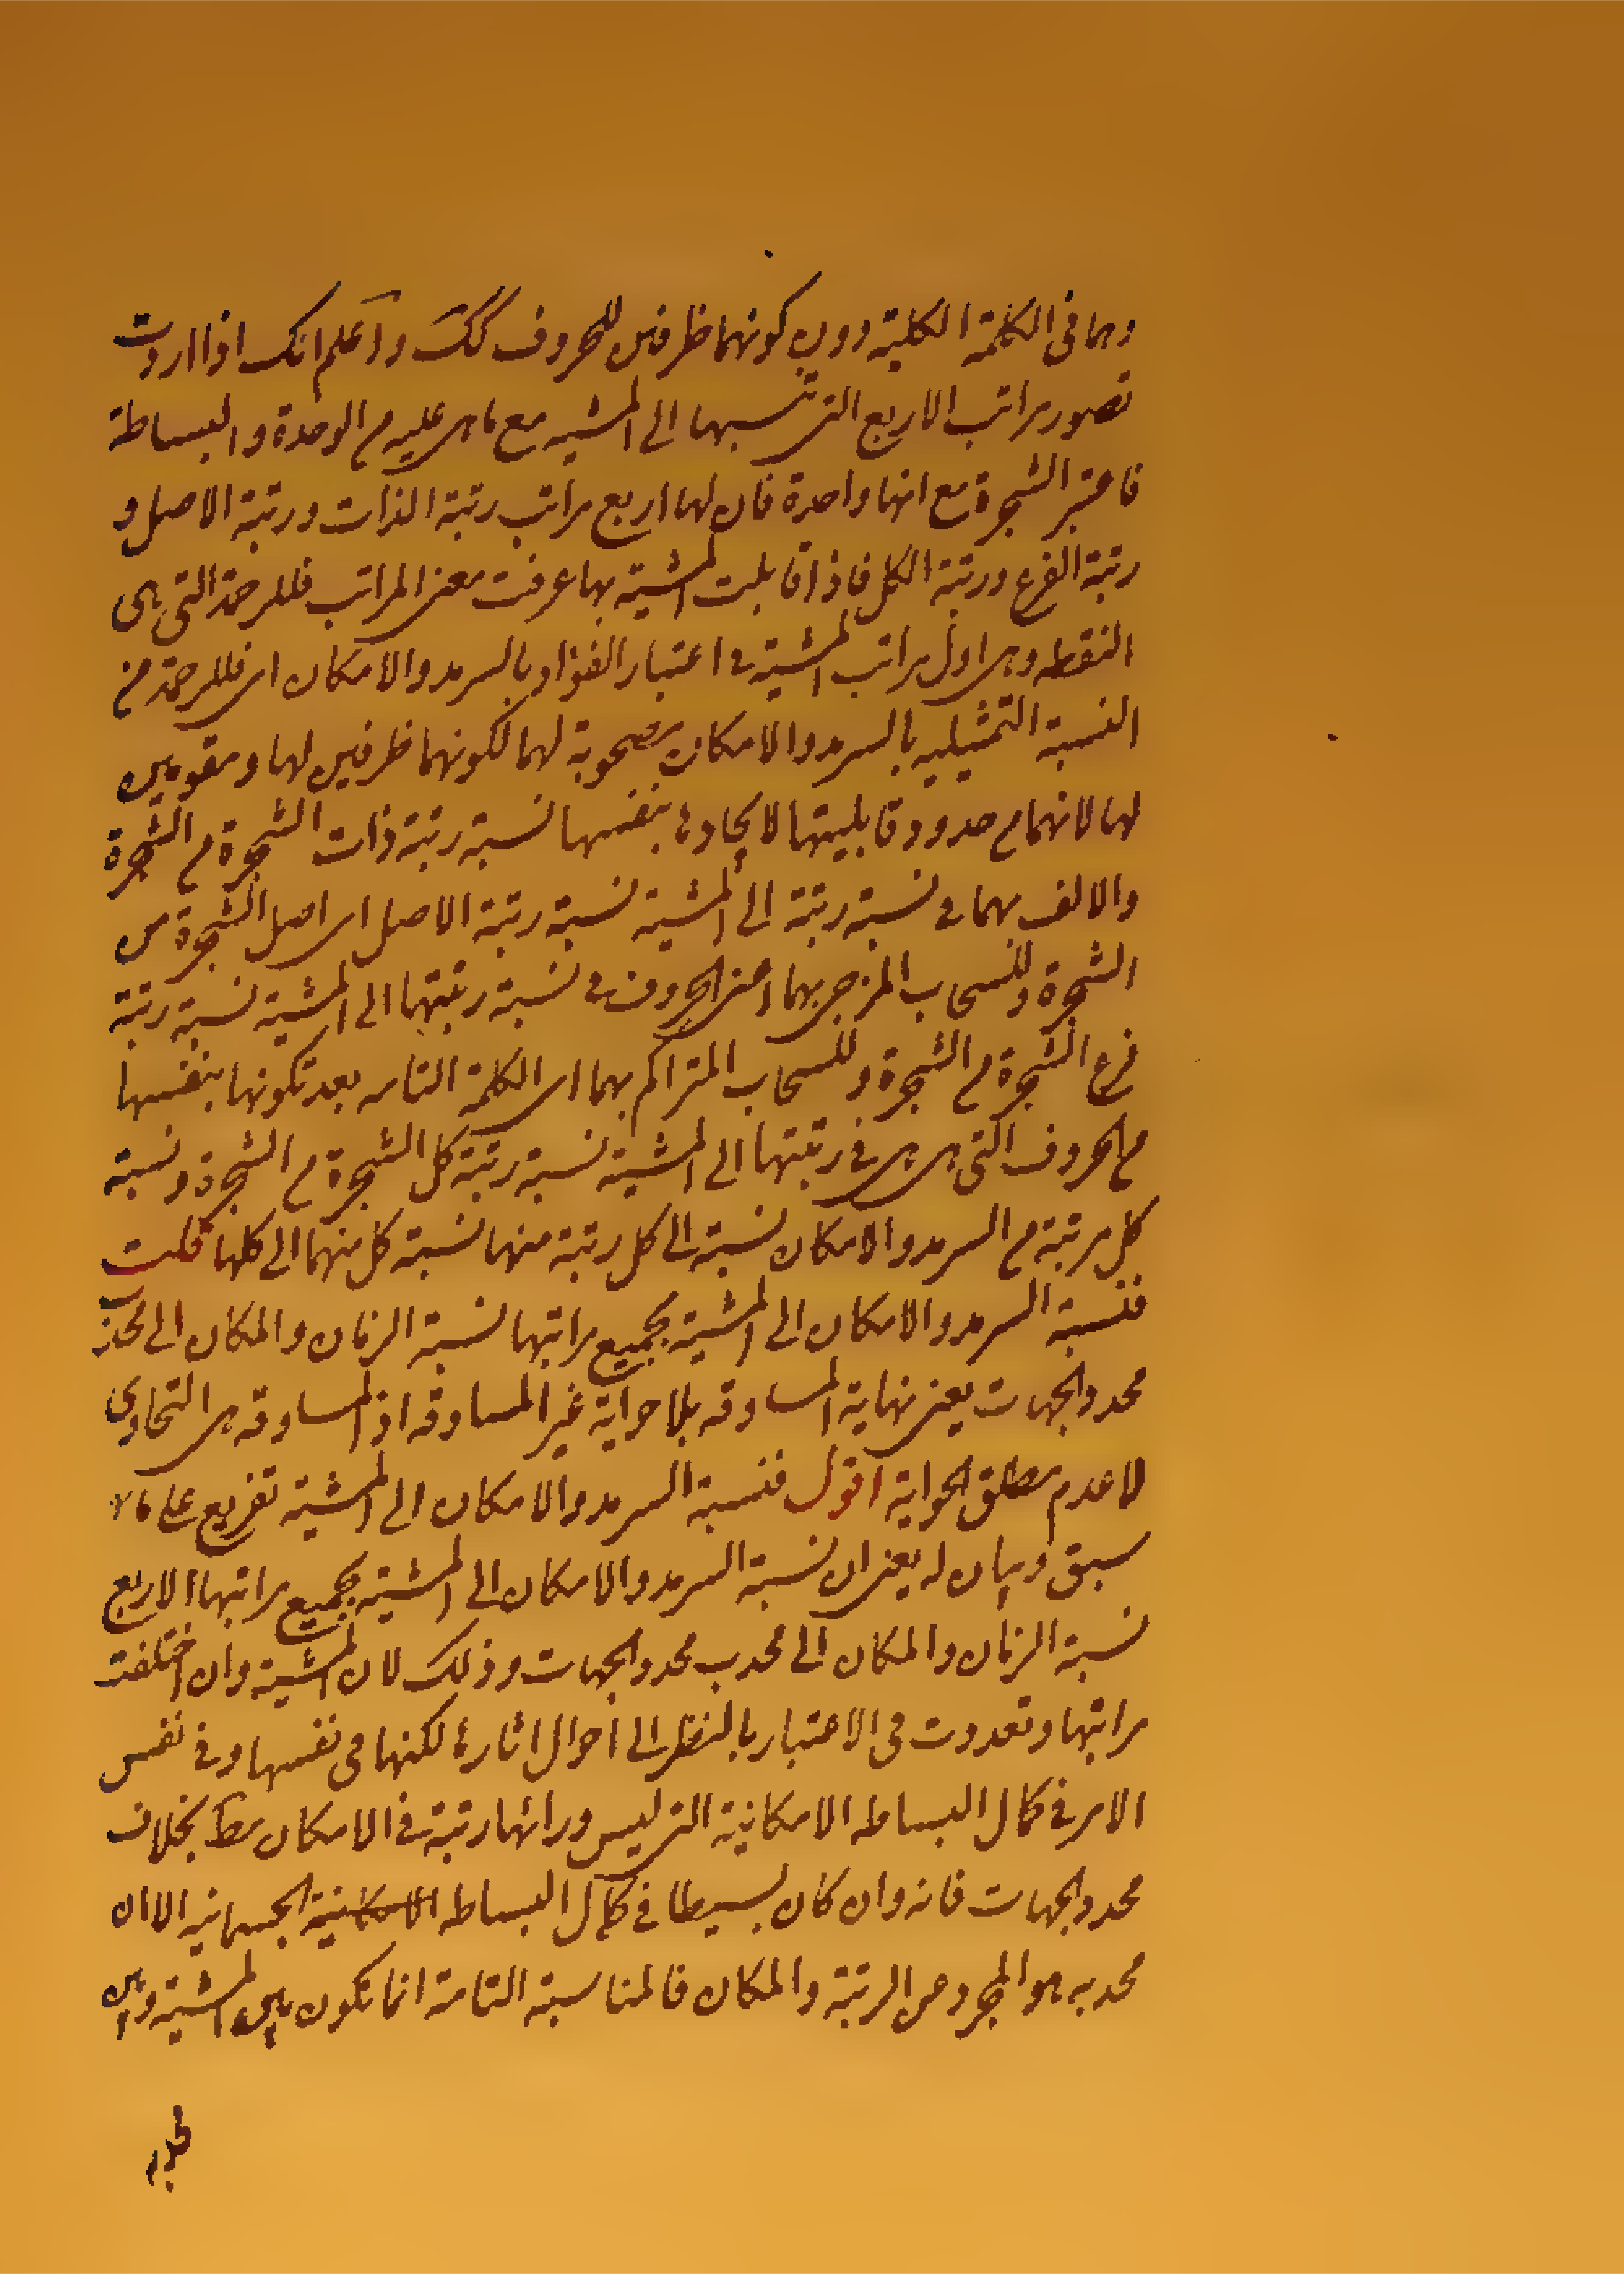 وهما في الكلمة الكلية دون كونهما ظرفين للحروف كك واعلم انك اذا اردت
تصور مراتب الاربع التي تنسبها الى المشيه مع ما هي عليه م الوحدة والبساطة
فاعتبر الشجرة مع انها واحدة فان لها اربع مراتب رتبة الذات ورتبة الاصل و
رتبة الفرع ورتبة الكل فاذا قابلت المشية بها عرفت معنى المراتب فللرحمة التي هي
النقطه وهي اول مراتب المشية في اعتبار الفؤاد بالسرمد والامكان اى فللرحمة من
النسبة التمثيليه بالسرمد والامكان مصحوبة لهما لكونهما ظرفين لها ومقومين
لها لانهما م حدود قابليتها لايجادها بنفسها نسبة رتبة ذات الشجرة م الشجرة
والالف بهما في نسبة رتبة الى المشية نسبة رتبة الاصل اى اصل الشجرة من
الشجرة وللسحاب المزجى بهما اعنى الحروف في نسبة رتبتها الى المشية نسبة رتبة
فرع الشجرة م الشجرة وللسحاب المتراكم بهما اى الكلمة التامه بعد تكونها بنفسها
م الحروف التى هى هى في رتبتها الى المشية نسبة رتبة كل الشجرة م الشجرة ونسبة
كل مرتبة م السرمد والامكان نسبة الى كل رتبة منها نسبة كل منهما الى كلها قلت
فنسبة السرمد والامكان الى المشية بجميع مراتبها نسبة الزمان والمكان الى محدب
محدد الجهات يعنى نهاية المساوقه بلا حواية غير المساوقه اذ المساوقه هى التحاوى
لا عدم مطلق الحواية اقول فنسبة السرمد والامكان الى المشية تفريع على ما
سبق وبيان له يعنى ان نسبة السرمد والامكان الى المشية بجميع مراتبها الاربع
نسبة الزمان والمكان الى محدب محدد الجهات وذلك لان المشية وان اختلفت
مراتبها وتعددت فى الاعتبار بالنظر الى احوال اثارها لكنها فى نفسها وفى نفس
الامر فى كمال البساطه الامكانية التى ليس ورائها رتبة فى الامكان مط بخلاف
محدد الجهات فانه وان كان بسيطا فى كمال البساطه الامكانية الجسمانيه الا ان
محدبه هو المجرد عن الرتبة والمكان فالمناسبة التامة انما تكون بين المشية وبين